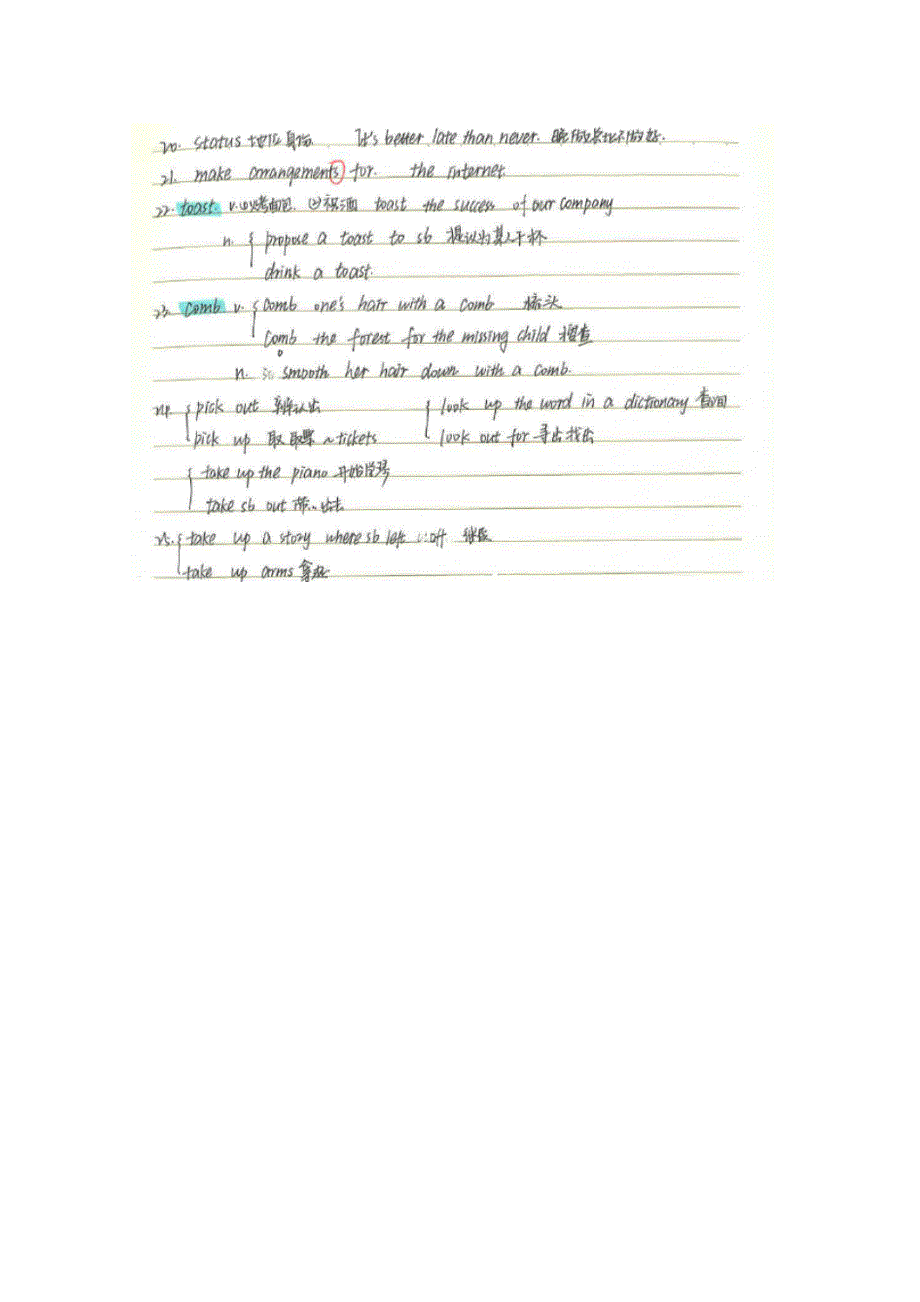 20. status 地位身份 It's better late than never. 晚做总比不做好.
21. make arrangements for. the internet
22. toast v. ①烤面包 ②祝酒 toast the success of our company
n. { propose a toast to sb 提议为某人干杯
drink a toast.
23. comb v. { comb one's hair with a comb 梳头
comb the forest for the missing child 搜查
n. smooth her hair down with a comb.
24. { pick out 辨认出 { look up the word in a dictionary 查阅
pick up 取 取票 ~tickets look out for 寻出找出
{ take up the piano 开始学琴
take sb out 带…出去
25. { take up a story where sb left off 继续
take up arms 拿起